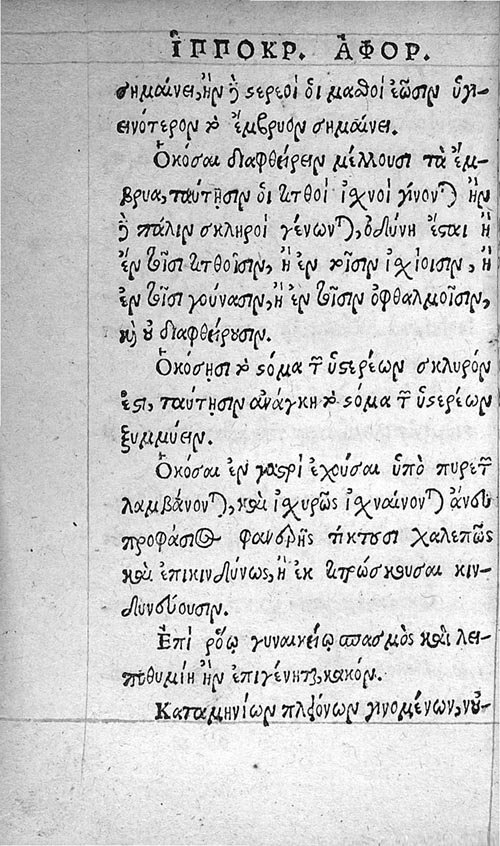 ἹΠΠΟΚΡ. ἈΦΟΡ.
σημαίνει, ἢν δὲ στερεοὶ οἱ μασθοὶ ἔωσιν ὑγι-
εινότερον τὸ ἔμβρυον σημαίνει.
Ὁκόσαι διαφθείρειν μέλλουσι τὰ ἔμ-
βρυα, ταύτῃσιν οἱ τιτθοὶ ἰχνοὶ γίνονται ἢν
δὲ πάλιν σκληροὶ γένωνται, ὀδύνη ἔσται ἢ
ἐν τοῖσι τιτθοῖσιν, ἢ ἐν τοῖσιν ἰχίοισιν, ἢ
ἐν τοῖσι γούνασιν, ἢ ἐν τοῖσιν ὀφθαλμοῖσιν,
καὶ οὐ διαφθείρουσιν.
Ὁκόσῃσι τὸ στόμα τῶν ὑστερέων σκλυρόν
ἐστι, ταύτῃσιν ἀνάγκη τὸ στόμα τῶν ὑστερέων
ξυμμύειν.
Ὁκόσαι ἐν γαστρὶ ἐχούσαι ὑπὸ πυρετῶν
λαμβάνονται, καὶ ἰχυρῶς ἰχναίνονται ἄνευ
προφάσιος φανερῆς τίκτουσι χαλεπῶς
καὶ ἐπικινδύνως, ἢ ἐκτιτρώσκουσαι κιν-
δυνεύουσιν.
Ἐπὶ ῥόῳ γυναικείῳ σπασμὸς καὶ λει-
ποθυμίη ἢν ἐπιγένηται, κακόν.
Καταμηνίων πλεόνων γινομένων, νού-